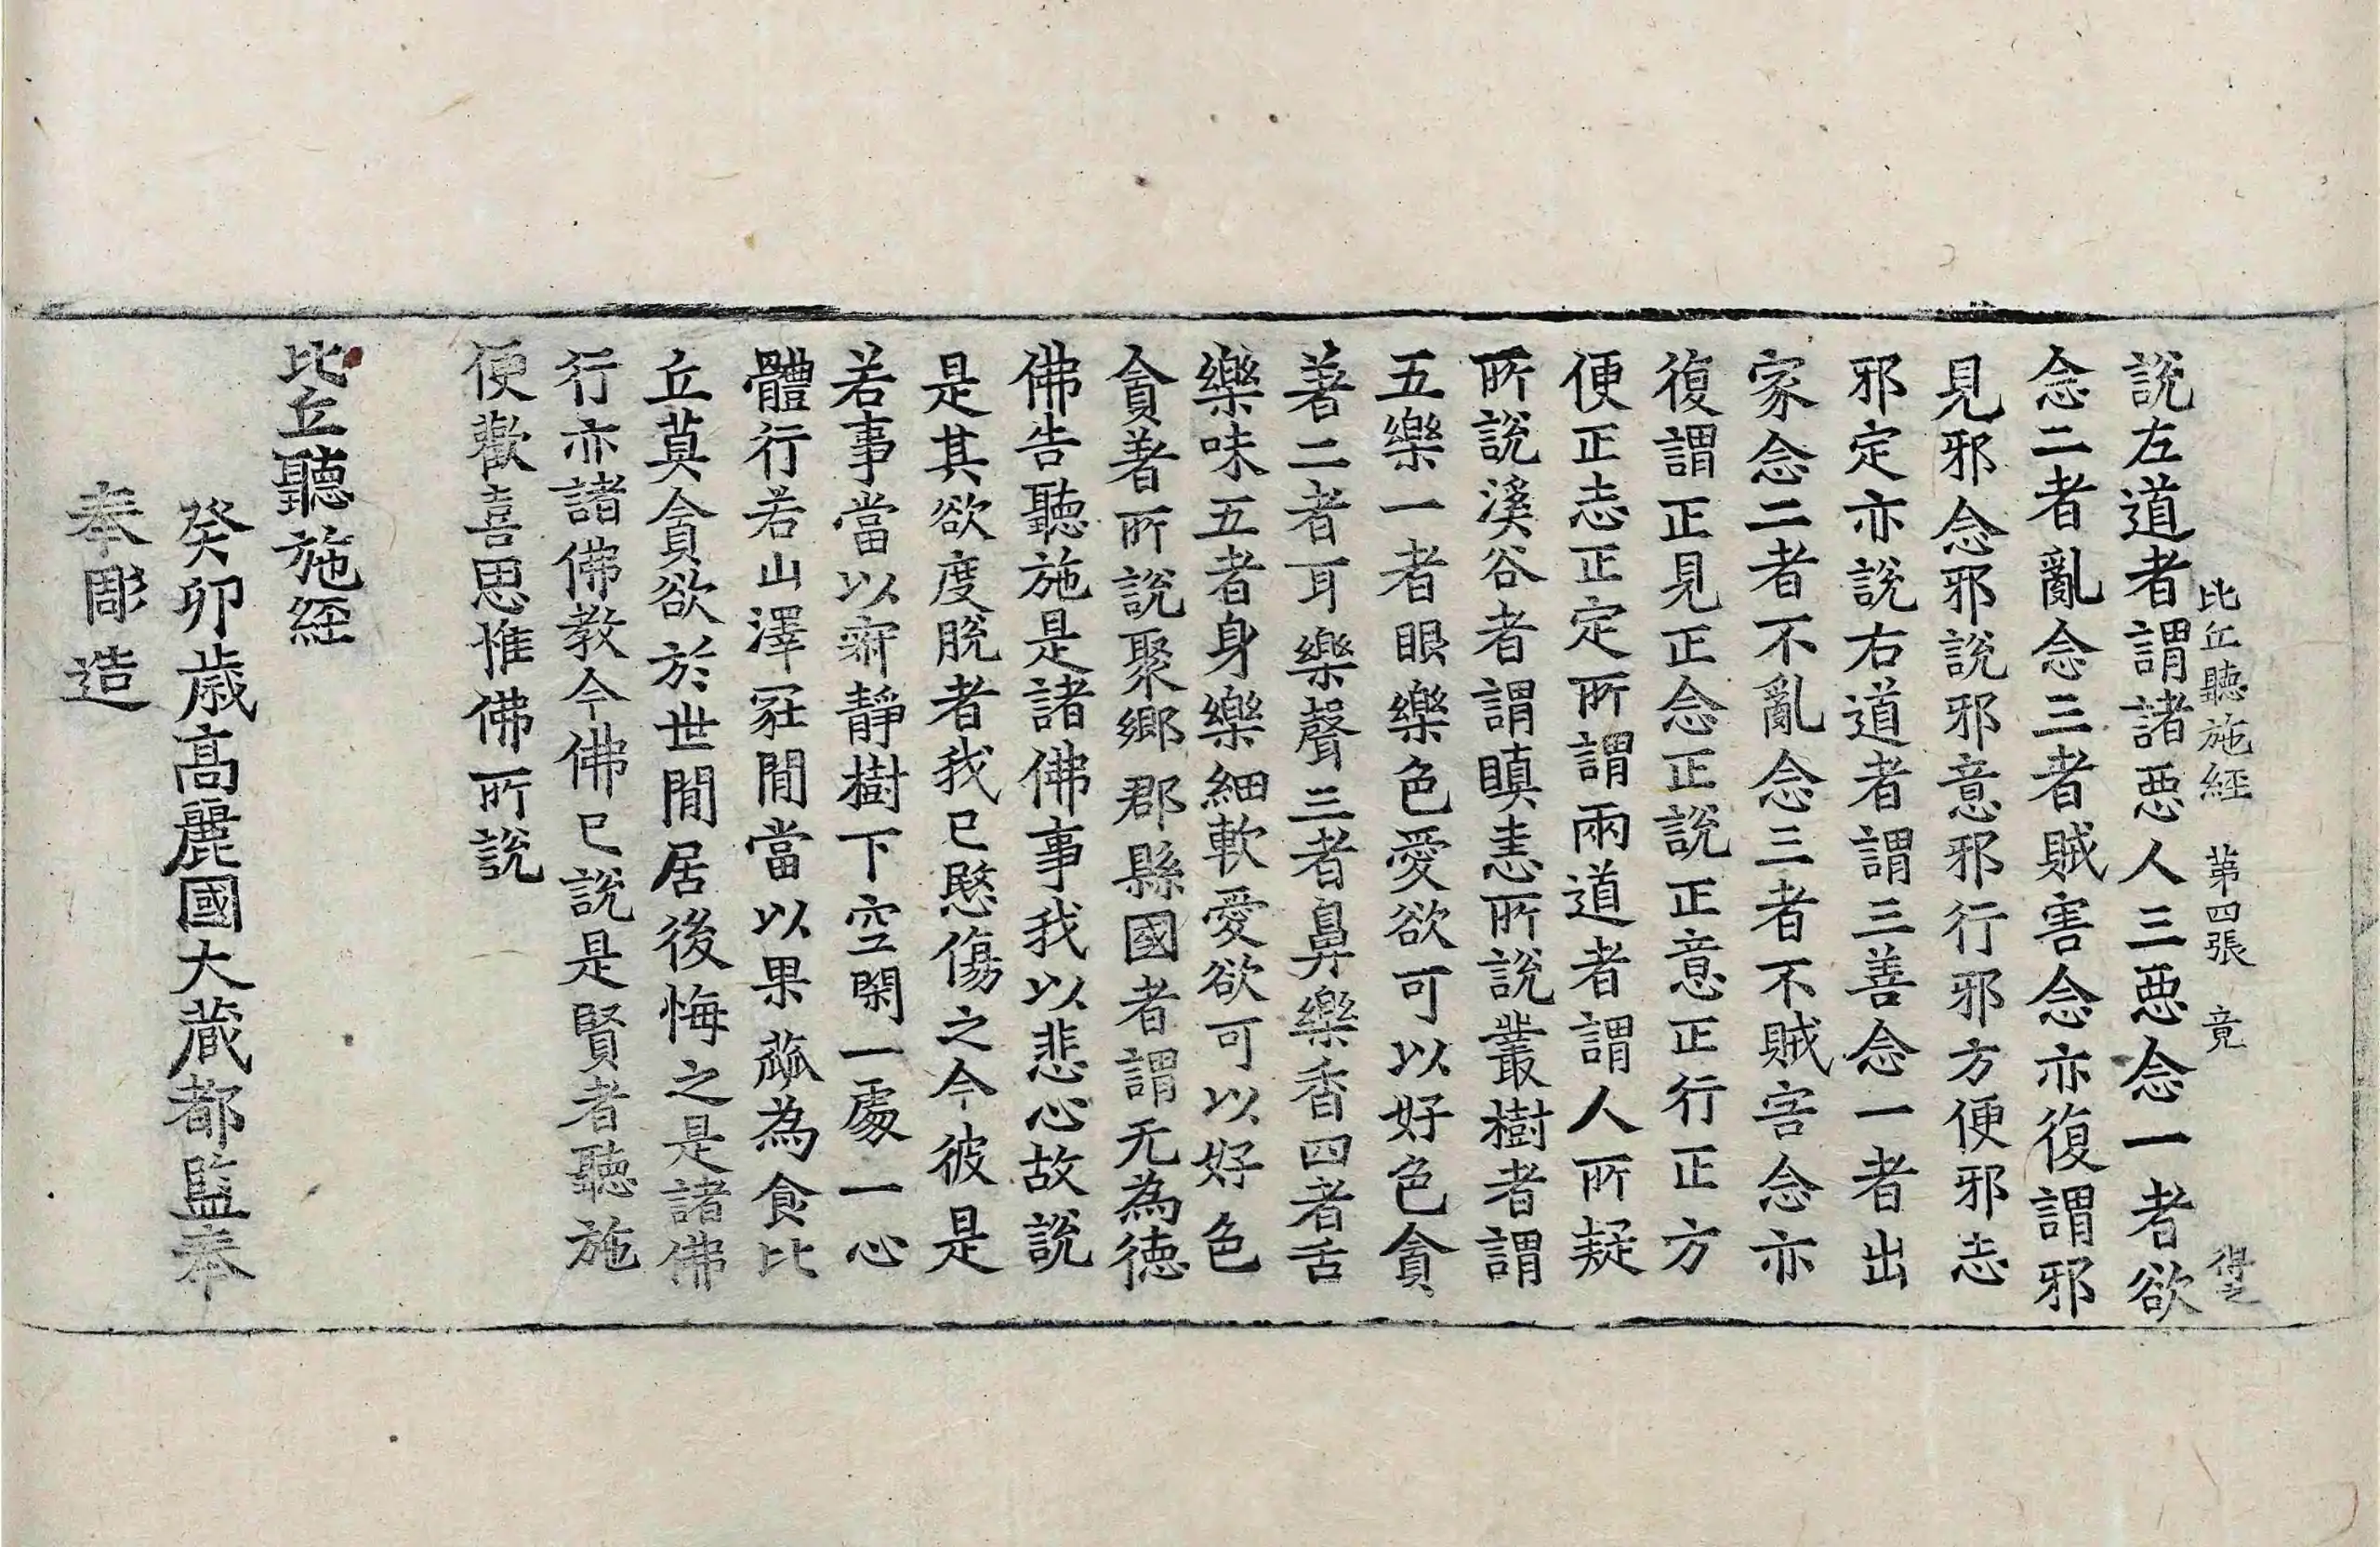 比丘聽施經 苐四張 竟
說左道者謂諸惡人三惡念一者欲
念二者亂念三者賊害念亦復謂邪
見邪念邪說邪意邪行邪方便邪志
邪定亦說右道者謂三善念一者出
家念二者不亂念三者不賊害念亦
復謂正見正念正說正意正行正方
便正志正定所謂兩道者謂人所疑
所說溪谷者謂瞋恚所說叢樹者謂
五樂一者眼樂色愛欲可以好色貪
著二者耳樂聲三者鼻樂香四者舌
樂味五者身樂細軟愛欲可以好色
貪著所說聚鄉郡縣國者謂无為德
佛告聽施是諸佛事我以悲心故說
是其欲度脫者我已愍傷之今彼是
若事當以齋靜樹下空閑一處一心
體行若山澤冢間當以果蓏為食比
丘莫貪欲於世間居後悔之是諸佛
行亦諸佛教今佛已說是賢者聽施
便歡喜思惟佛所說
比丘聽施經
癸卯歲高麗國大藏都監奉
奉彫造